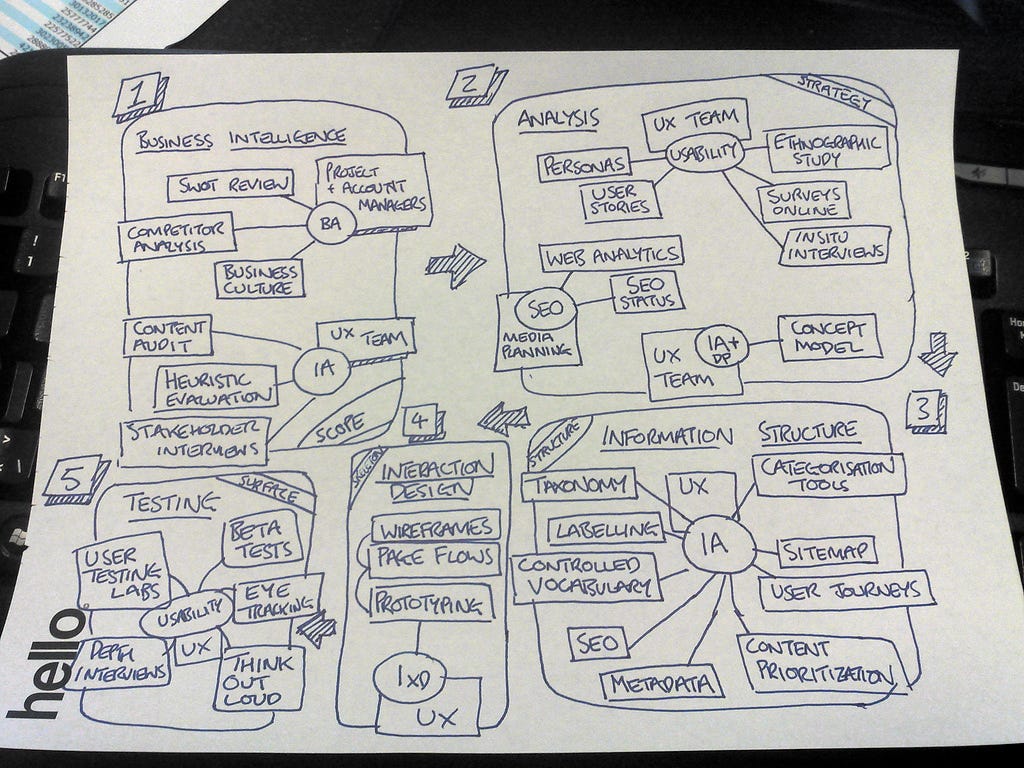 1
BUSINESS INTELLIGENCE
SWOT REVIEW
PROJECT
+ ACCOUNT
MANAGERS
BA
COMPETITOR
ANALYSIS
BUSINESS
CULTURE
CONTENT
AUDIT
UX TEAM
IA
HEURISTIC
EVALUATION
STAKEHOLDER
INTERVIEWS
SCOPE
2
STRATEGY
ANALYSIS
UX TEAM
USABILITY
PERSONAS
USER
STORIES
ETHNOGRAPHIC
STUDY
SURVEYS
ONLINE
INSITU
INTERVIEWS
WEB ANALYTICS
SEO
STATUS
SEO
MEDIA
PLANNING
UX
TEAM
IA+
DP
CONCEPT
MODEL
3
STRUCTURE
INFORMATION STRUCTURE
TAXONOMY
UX
CATEGORISATION
TOOLS
LABELLING
IA
SITEMAP
CONTROLLED
VOCABULARY
USER JOURNEYS
SEO
METADATA
CONTENT
PRIORITIZATION
4
INTERACTION
DESIGN
WIREFRAMES
PAGE FLOWS
PROTOTYPING
IXD
UX
5
SURFACE
TESTING
BETA
TESTS
USER
TESTING
LABS
EYE
TRACKING
USABILITY
UX
DEPTH
INTERVIEWS
THINK
OUT
LOUD
hello
F1
!
1